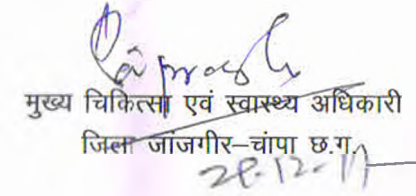 मुख्य चिकित्सा एवं स्वास्थ्य अधिकारी
जिला जांजगीर–चांपा छ.ग.
28.12.17